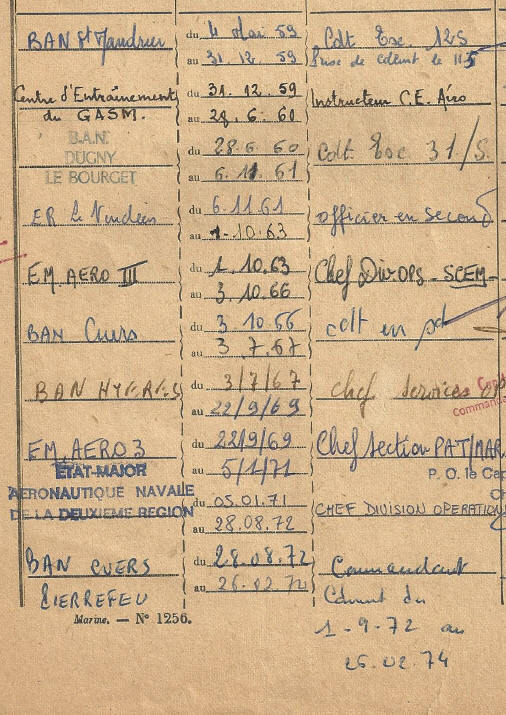 BAN St Mandrier du 4 Mai 59 Cdt Esc. 12S
au 31.12.59 Prise de cdemt le 11-5
Centre d'Entraînement du 31.12.59 Instructeur C.E. Aéro
du GASM. au 28.6.60
B.A.N. du 28.6.60 Cdt Esc 31/S.
DUGNY
LE BOURGET au 6.11.61
ER Le Vendéen du 6.11.61 officier en second
au 1.10.63
EM. AERO III du 1.10.63 Chef Div OPS - SCEM -
au 3.10.66
BAN Cuers du 3.10.66 cdt en pd
au 3.7.67
BAN HYERES du 3/7/67 Chef Services
au 22/9/69 comman
EM. AERO 3 du 22/9/69 Chef Section PAT/MAR.
ÉTAT-MAJOR au 5/1/71 P. O. le Cap
AERONAUTIQUE NAVALE
DE LA DEUXIEME REGION du 05.01.71 CHEF DIVISION OPERATION
au 28.08.72
BAN CUERS du 28.08.72 Commandant
PIERREFEU au 26.02.72 Cdmnt du
Marine. — N° 1256. 1-9-72 au
26.02.74